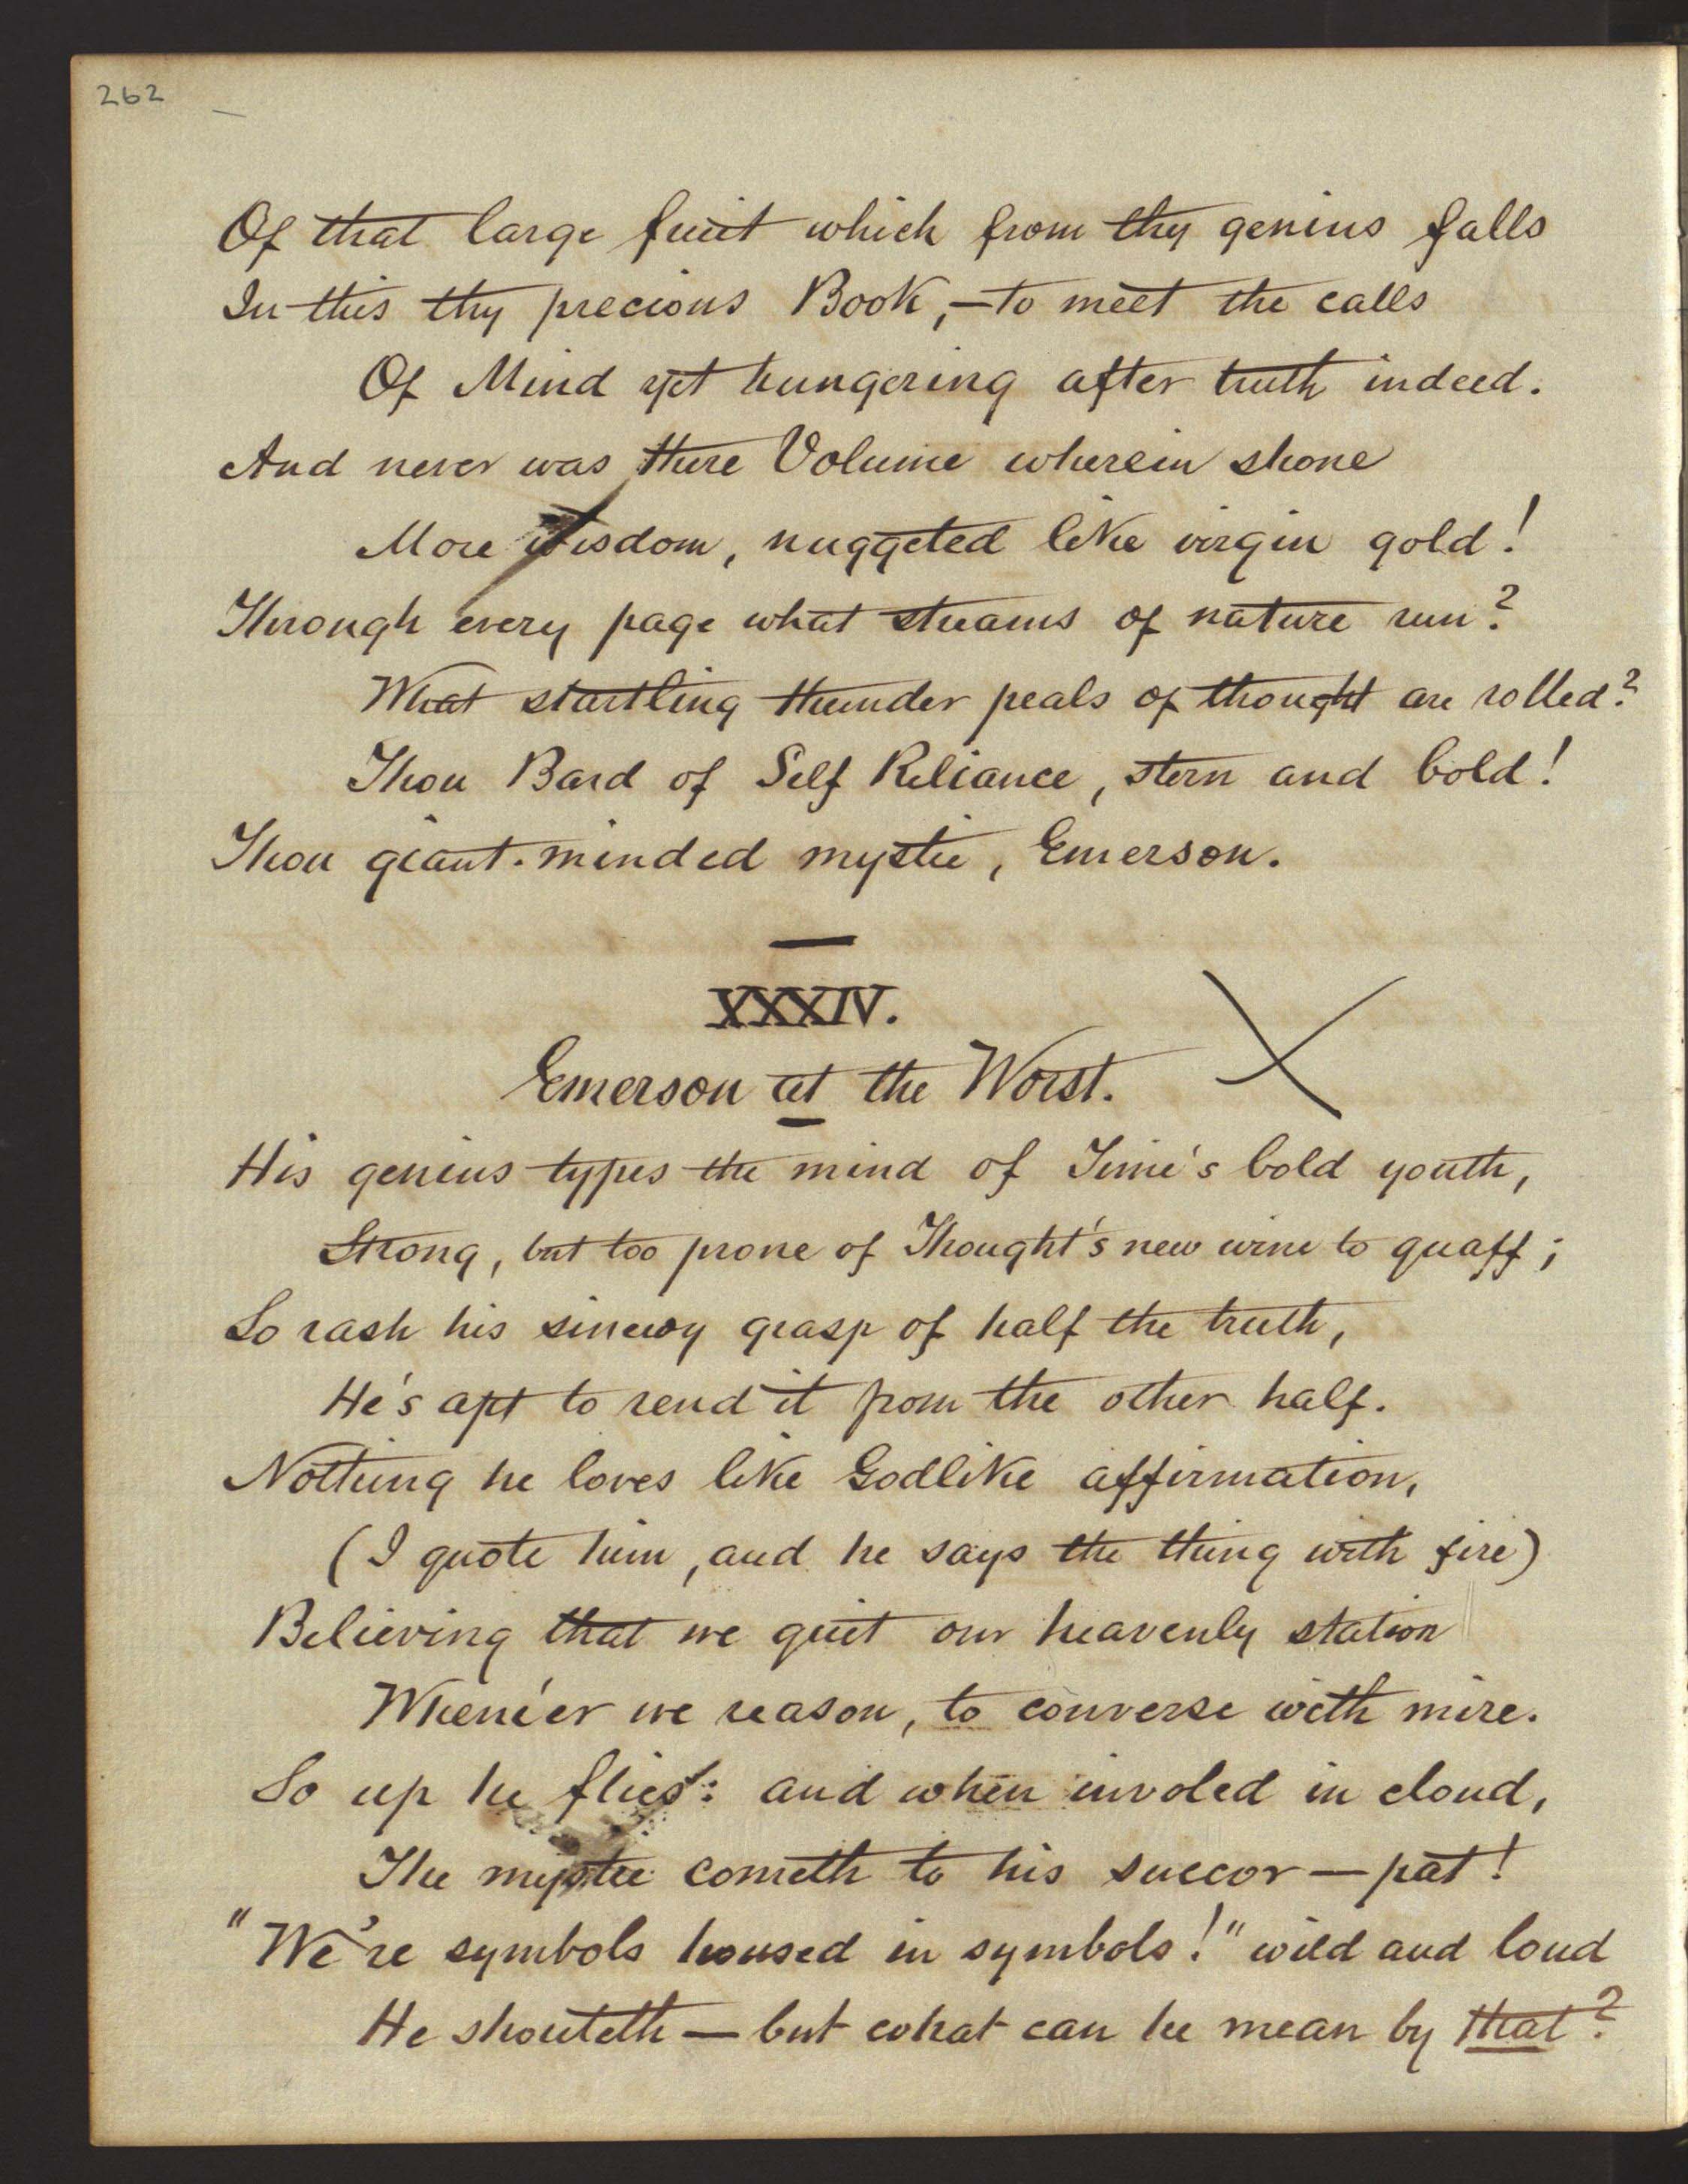 262
Of that large fruit which from thy genius falls
In this thy precious Book,—to meet the calls
Of Mind yet hungering after truth indeed.
And never was there Volume wherein shone
More wisdom, nuggeted like virgin gold!
Through every page what streams of nature run?
What startling thunder peals of thought are rolled?
Thou Bard of Self Reliance, stern and bold!
Thou giant-minded mystic, Emerson.
XXXIV.
Emerson at the Worst.
His genius types the mind of Time's bold youth,
Strong, but too prone of Thought's new wine to quaff;
So rash his sinewy grasp of half the truth,
He's apt to rend it from the other half.
Nothing he loves like Godlike affirmation,
(I quote him, and he says the thing with fire)
Believing that we quit our heavenly station
Whene'er we reason, to converse with mire.
So up he flies: and when involed in cloud,
The mystic cometh to his succor—pat!
"We're symbols housed in symbols!" wild and loud
He shouteth—but what can he mean by that?